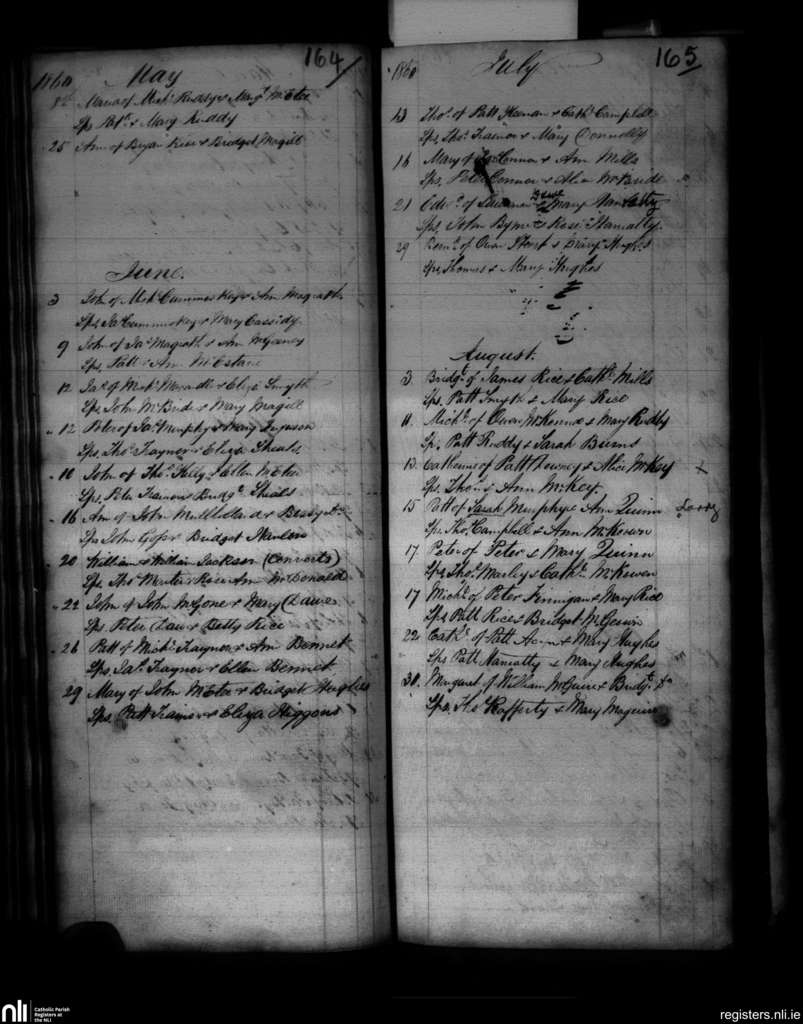 164
1860 May
Maria of Mich.l Ruddy & Marg.t McEtee
Sps Pat.k & Mary Ruddy
25 Ann of Bryan Rice & Bridget Magill
June.
3 John of Mich.l Cummuskey & Ann Magrath
Sps, Ja.s Cummuskey & Mary Cassidy.
9 John of Ja.s Magrath & Ann
Sps, Patt & Ann
12 Ja.s of Mich.l & Eliza Smyth
Sps John McBride & Mary Magill
12 Peter of Ja.s Murphy & Mary Ferguson
Sps, Tho.s Traynor & Eliza Shields
10 John of Tho.s Kelly & Ellen McEtee
Sps, Peter Trainor & Bridg.t Shields
16 Ann of John Mullholland & Bridget
Sps John Goss & Bridget Hanlon
20 William & William Jackson (Converts)
Sps, Tho.s & Rose Ann McDonald
22 John of John McGone & Mary Law
Sps, Peter Law & Betty Rice
26 Patt of Mich.l Traynor & Ann Bennet
Sps, Ja.s Traynor & Ellen Bennet
29 Mary of John McEtee & Bridget Hughes
Sps, Patt Trainor & Eliza Higgons
165
1860 July
13 Tho.s of Patt Keenan & Cath.e Campbell
Sps, Tho.s Trainor & Mary Connolly
16 Mary of Connor & Ann Mills
Sps, Peter Connor & Alice McBride
21 Edw.d of & Mary
Sps, John Byrne & Rose Hamatty.
29 of Owen Short & Mary Hughes
Sps, Thomas & Mary Hughes
August.
3 Bridg.t of James Rice & Cath.e Mills
Sps, Patt Smyth & Mary Rice
11 Mich.l of Owen McKenna & Mary Ruddy
Sps, Patt Ruddy & Sarah Burns
13 Catherine of Patt Downey & Alice McKey x
Sps, Tho.s & Ann McKey.
15 Patt of Sarah Murphy & Ann Quinn
Sps, Tho.s Campbell & Ann McKeown
17 Peter of Peter & Mary Quinn
Sps, Tho.s Marley & Cath.e McKewen
17 Mich.l of Peter Finnigan & Mary Rice
Sps, Patt Rice & Bridget McGeown
22 Cath.e of Patt & Mary Hughes
Sps Patt Hamatty & Mary Hughes
30. Margaret of William McGuire & Bridg.t Do
Sps, Tho.s Rafferty & Mary Maguire
nli
Catholic Parish
Registers at
the NLI
registers.nli.ie